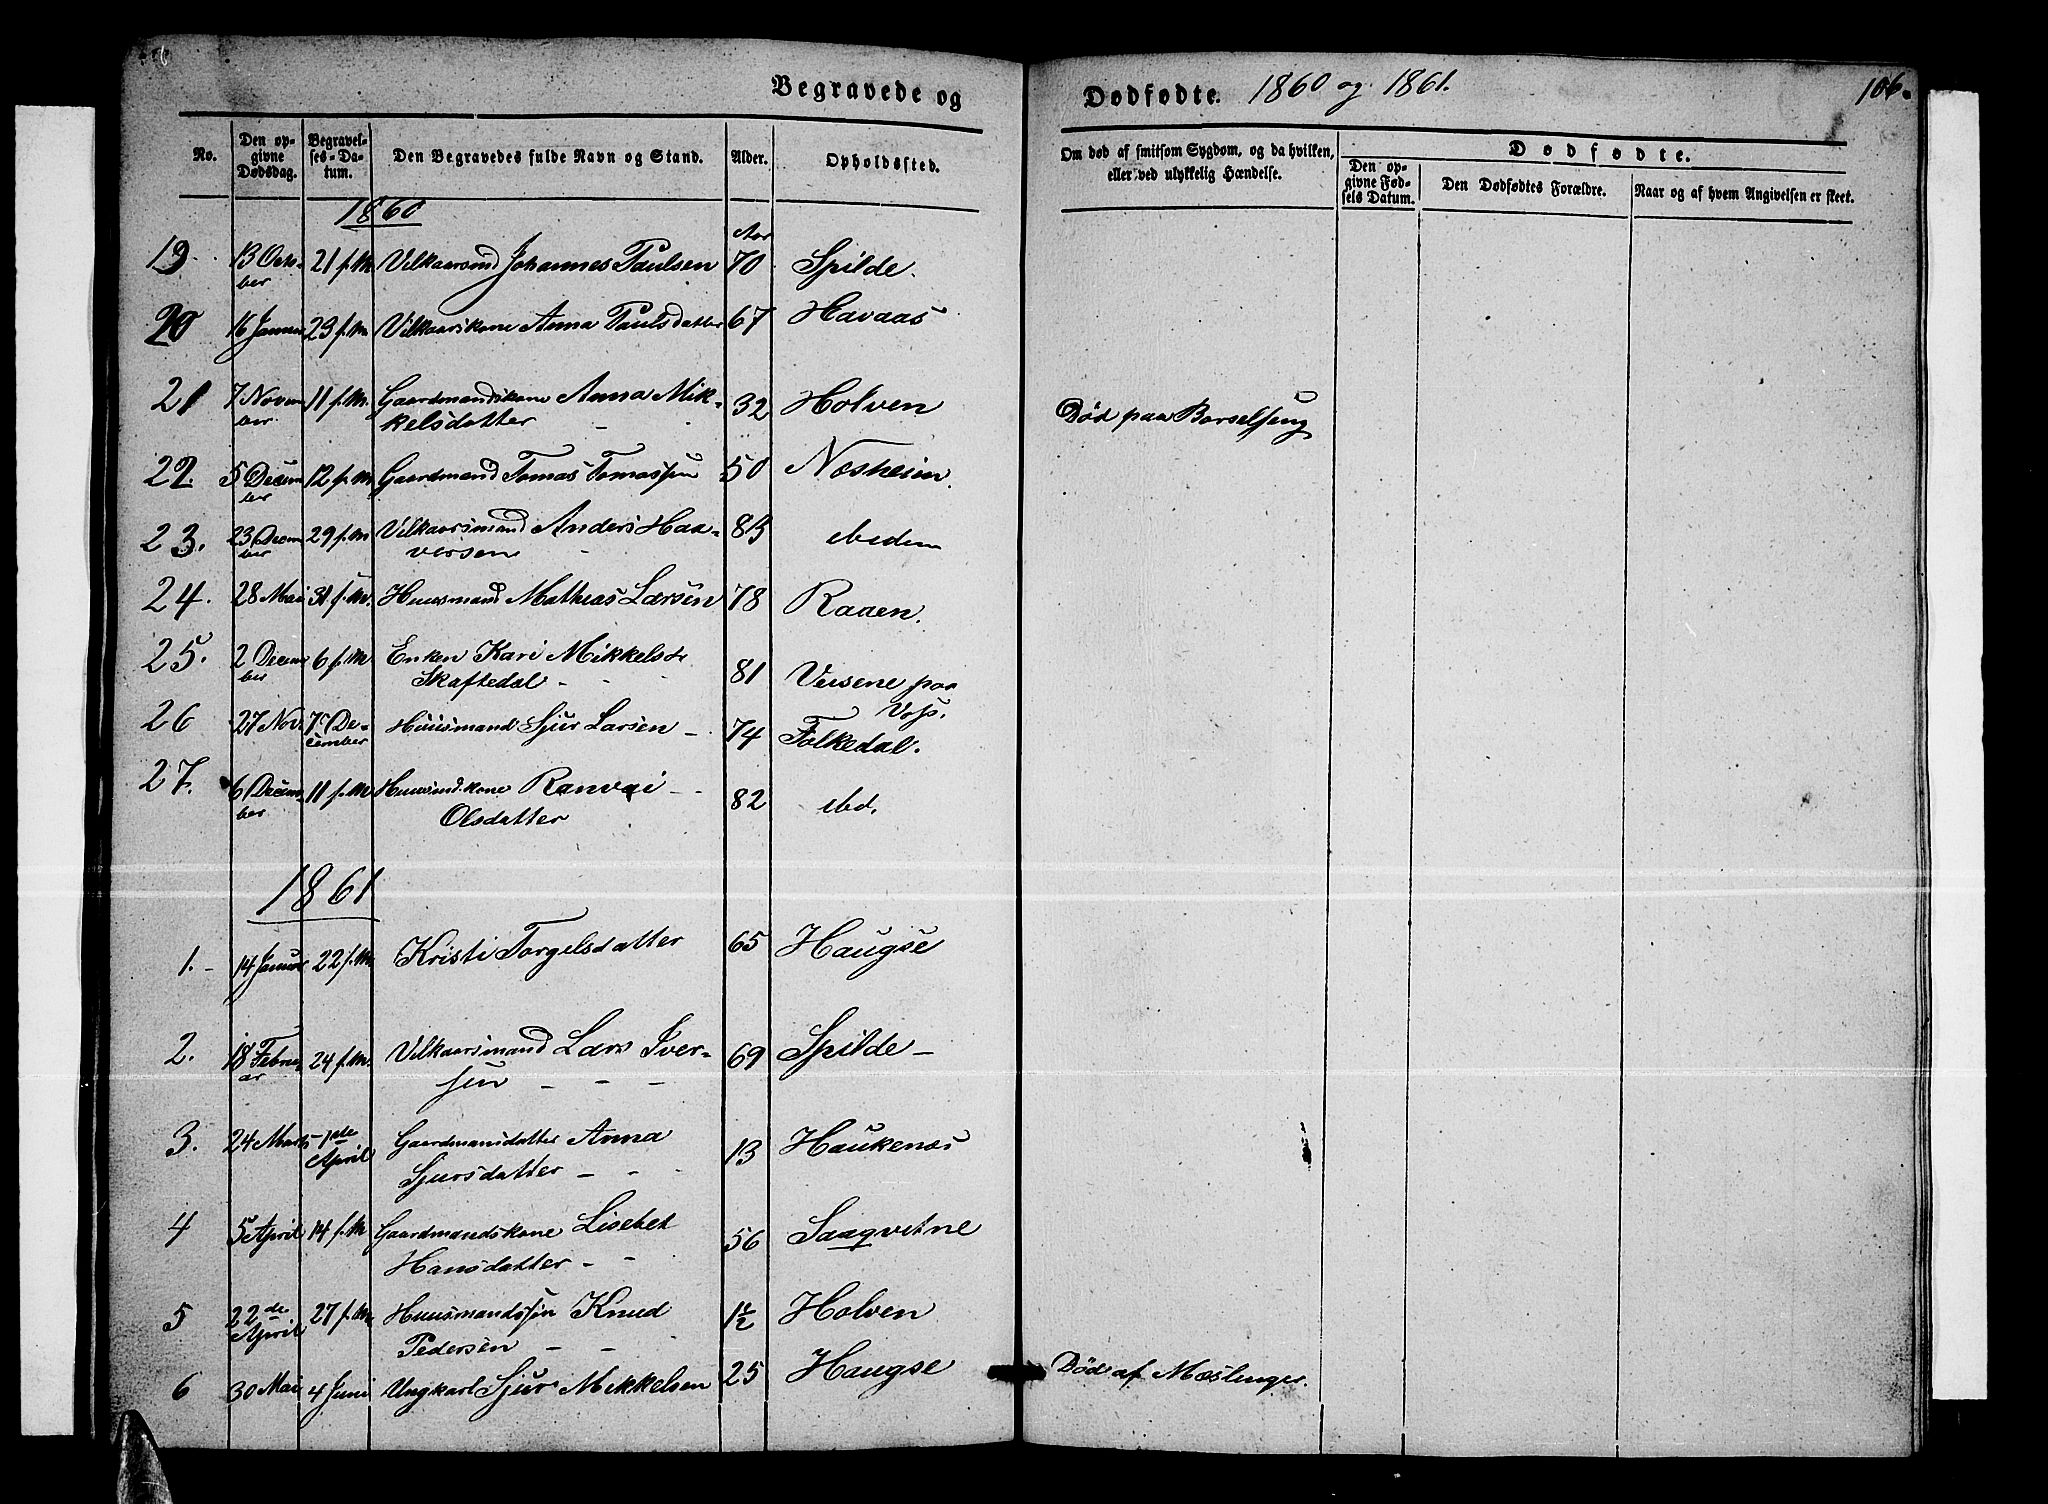 Begravede og Dødfødte. 1860 og 1861. 106.
No.
Den opgivne Dødsdag.
Begravelses-Datum.
Den Begravedes fulde Navn og Stand.
Alder.
Opholdssted.
Om død af smitsom Sygdom, og da hvilken, eller ved ulykkelig Hændelse.
Dødfødte.
Den opgivne Fødsels Datum.
Den Dødfødtes Forældre.
Naar og af hvem Angivelsen er skeet.
1860
Aar
19. 13 Octo- 21 f. M. Vilkaarsmd Johannes Paulsen 70 Spilde.
ber
20 16 Januar 23 f. M. Vilkaarskone Anna Paulsdatter 67 Havaas
21 7 Novem 11 f. M. Gaardmandskone Anna Mik- 32 Holven Død paa Barselseng
ber kelsdatter -
22. 5 Decem 12 f. M. Gaardmand Tomas Tomassen 50 Næsheim.
ber
23. 23 Decem 29 f. M. Vilkaarsmand Anders Haa- 83 ibidem
ber versen -
24. 28 Mai 31 f. M. Huusmand Mathias Larsen 78 Raaen.
25. 2 Decem 6 f. M Enken Kari Mikkelsd 81 Versene paa
ber Skaftedal - Voss.
26 27 Nov. 7 De- Huusmand Sjur Larsen - 74 Folkedal.
cember
27. 6 Decem- 11 f. M Huusmdskone Ranvei - 82 ibd.
ber Olsdatter
1861
1. - 14 Januar 22 f. M. Kristi Torgelsdatter 65 Haugse
2. 18 Febru- 24 f. M. Vilkaarsmand Lars Iver- 69 Spilde -
ar sen - - -
3. 24 Marts - 1ste Gaardmansdatter Anna 13 Haukenæs
April Sjursdatter - -
4 5 April 14 f. M Gaardmandskone Lisebet 56 Saaqvitne
Hansdatter - -
5 22de 27 f. M. Huusmandssøn Knud 1½ Holven
April Pedersen - -
6 30 Mai 4 Juni Ungkarl Sjur Mikkelsen 25 Haugse Død af Mæslinger.